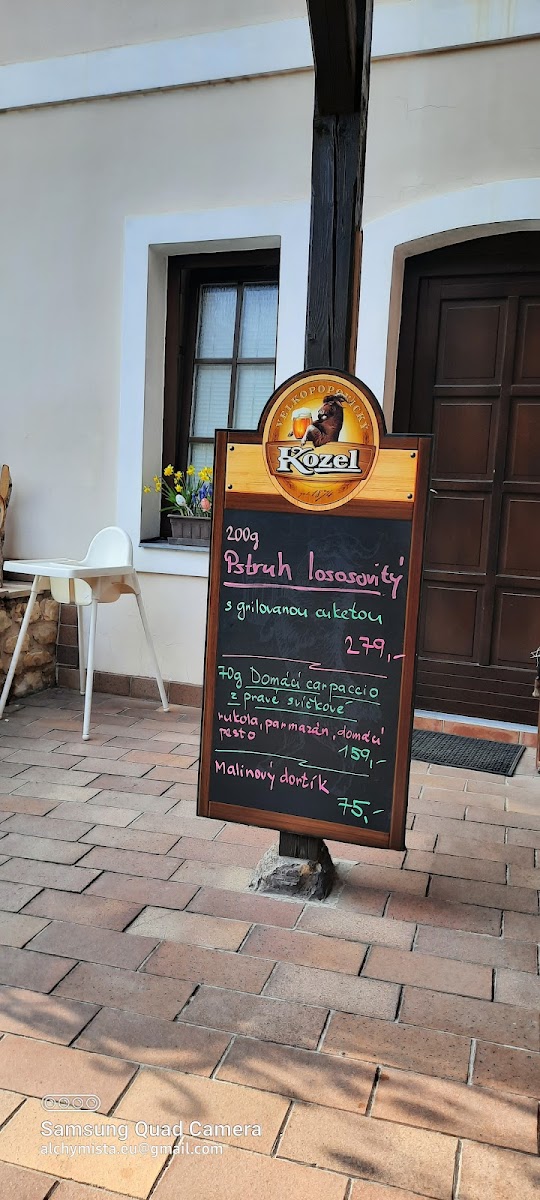 VELKOPOPOVICKÝ
Kozel
1874
200g
Pstruh lososovitý
s grilovanou cuketou
279,-
70g Domácí carpaccio
z pravé svíčkové
rukola, parmazán, domácí
pesto 159,-
Malinový dortík
75,-
Samsung Quad Camera
alchymista.eu@gmail.com